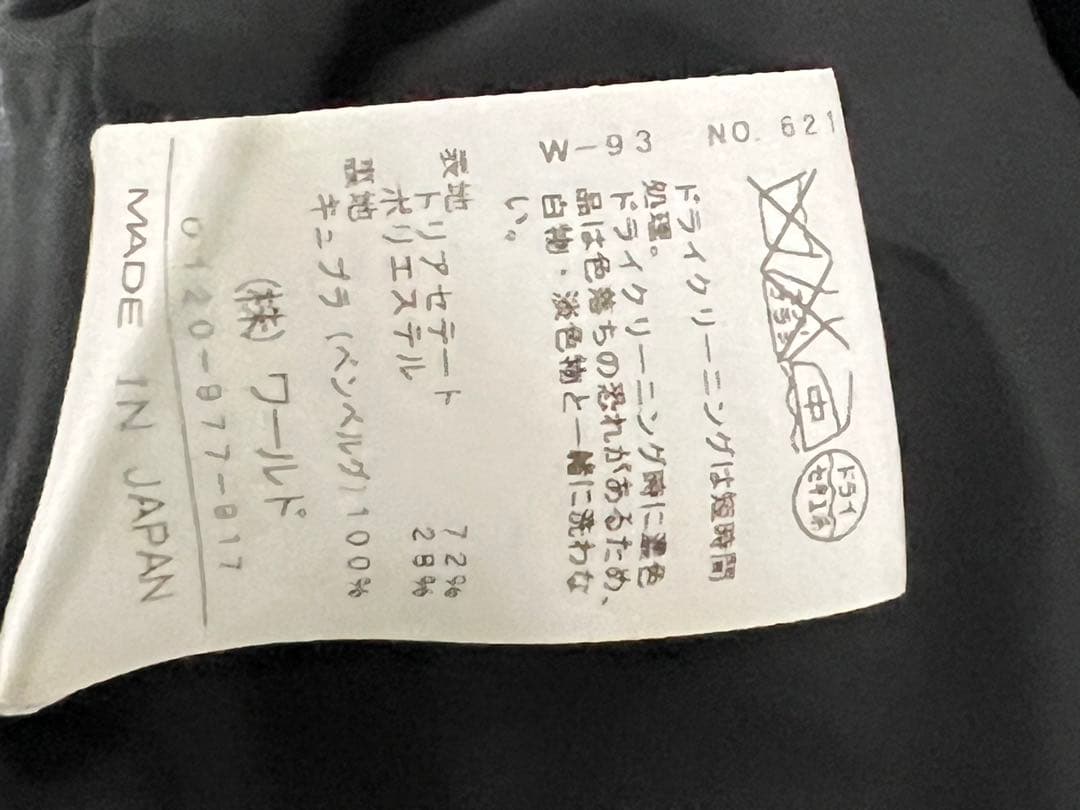 NO. 621
エンソサラシ
中
ドライ
セキユ系
ドライクリーニングは短時間
処理。
ドライクリーニング時に濃色
品は色落ちの恐れがあるため、
白物・淡色物と一緒に洗わな
い。
W-93
表地
トリアセテート 72%
ポリエステル 28%
裏地
キュプラ(ベンベルグ)100%
(株)ワールド
0120-877-817
MADE IN JAPAN